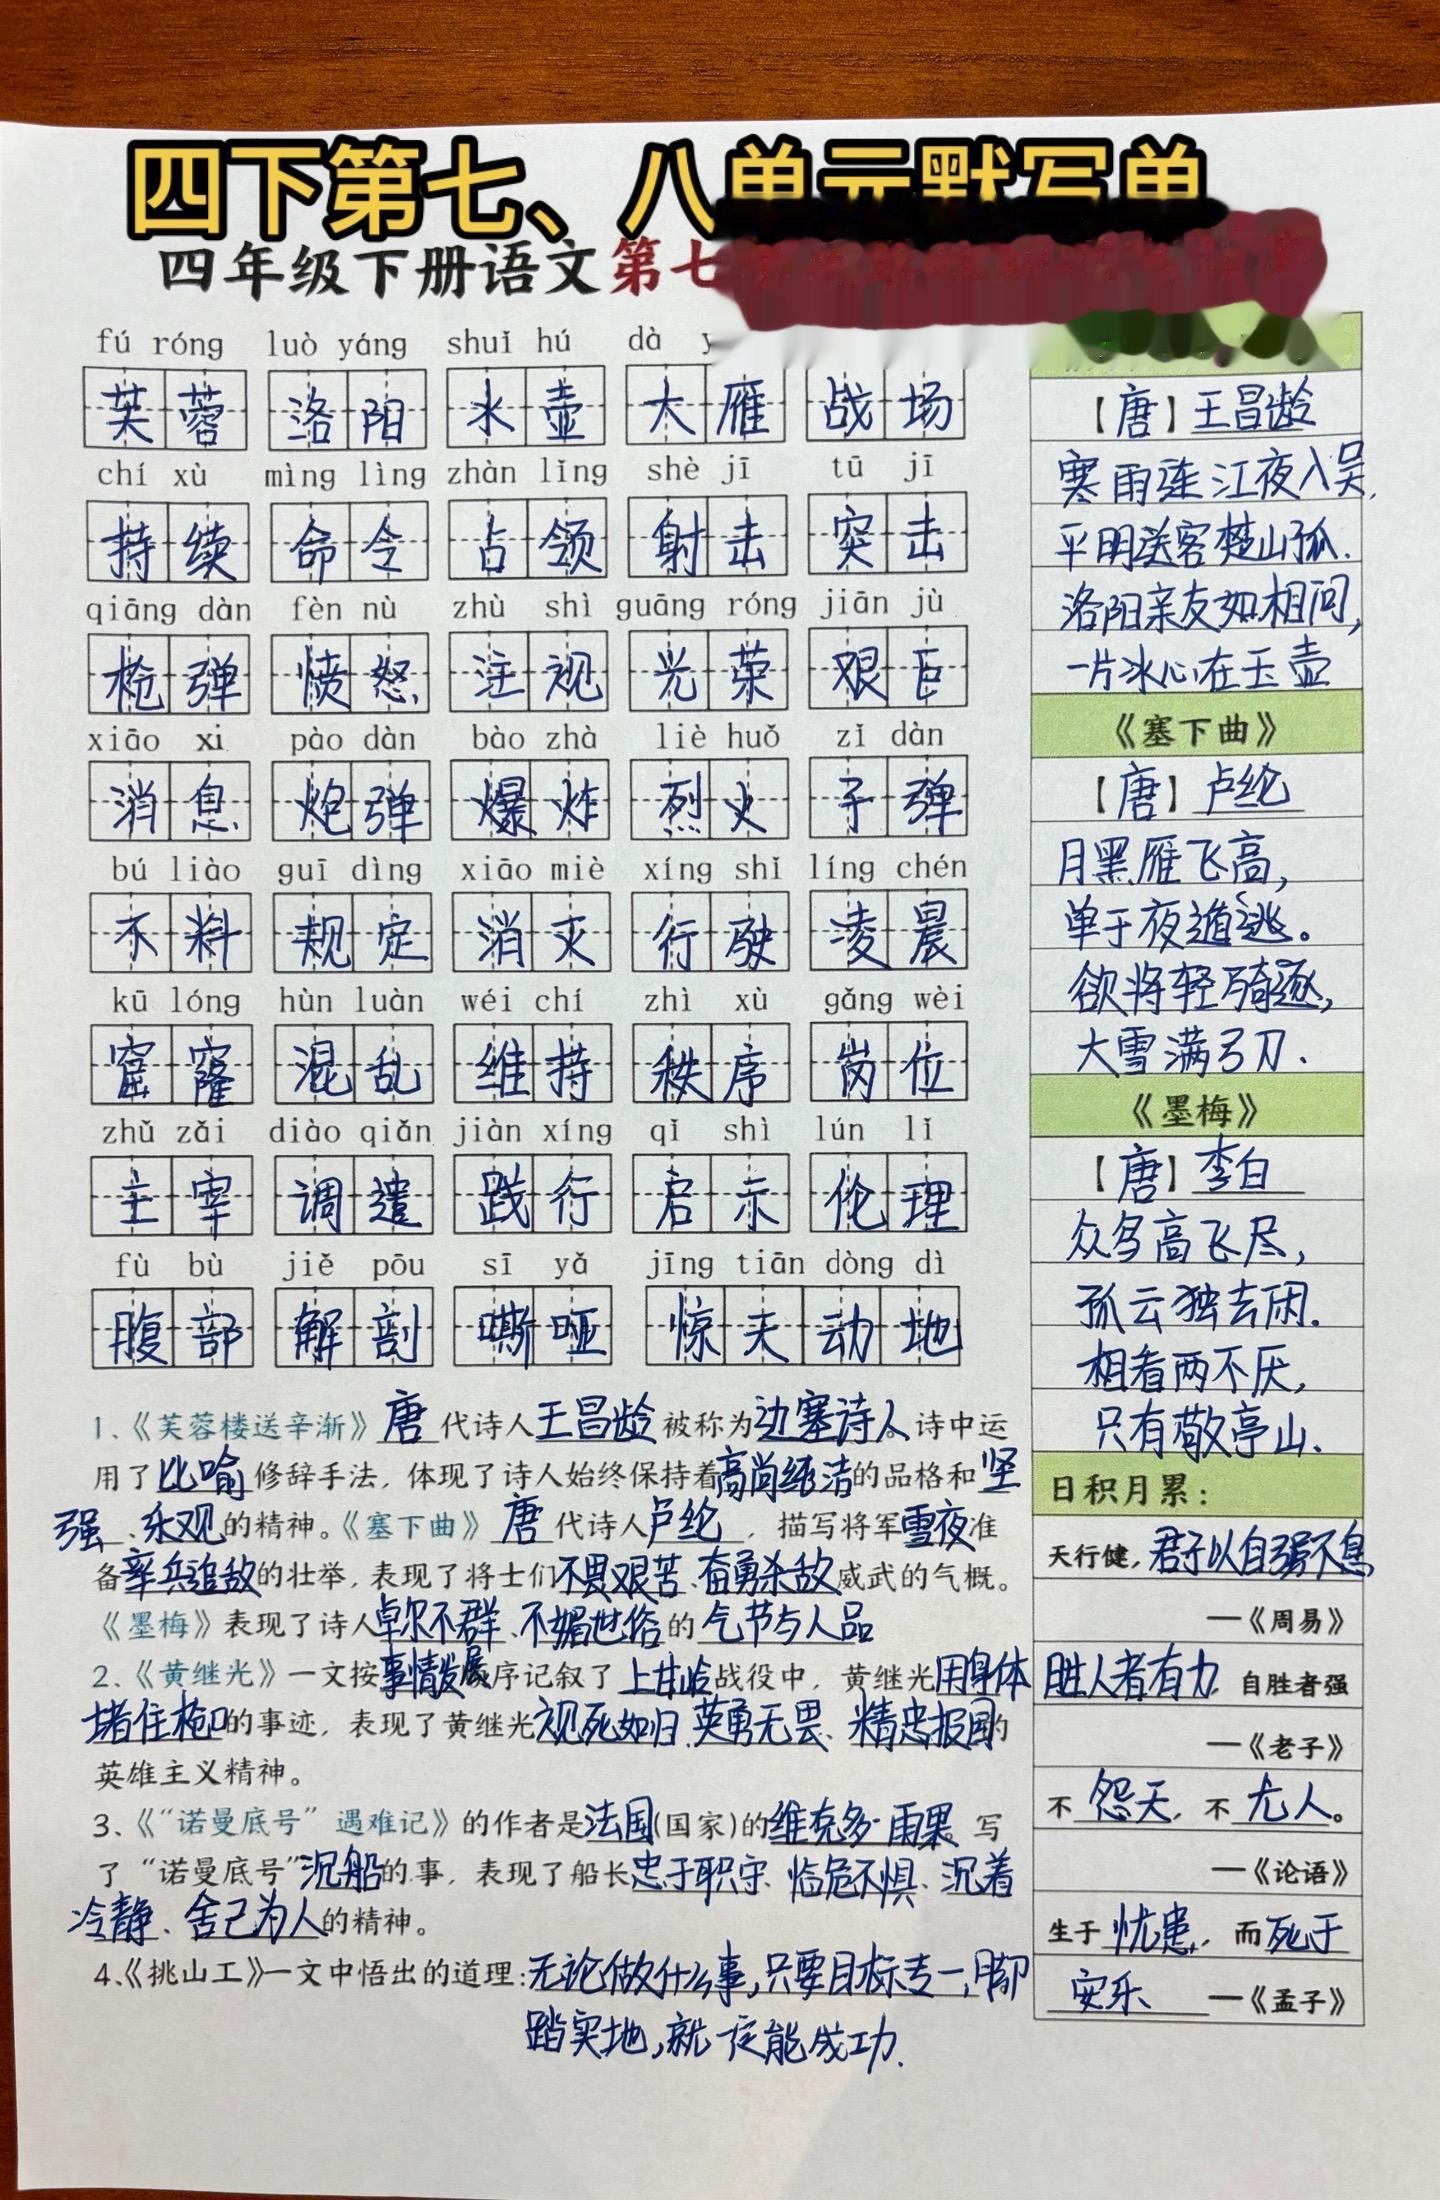 四下第七、八单元默写单
四年级下册语文第七
fú róng luò yáng shuǐ hú dà
芙蓉 洛阳 水壶 大雁 战场
chí xù mìng lìng zhàn lǐng shè jī tū jī
持续 命令 占领 射击 突击
qiāng dàn fèn nù zhù shì guāng róng jiān jù
枪弹 愤怒 注视 光荣 艰巨
xiāo xi pào dàn bào zhà liè huǒ zǐ dàn
消息 炮弹 爆炸 烈火 子弹
bú liào guī dìng xiāo miè xíng shǐ líng chén
不料 规定 消灭 行驶 凌晨
kū lóng hùn luàn wéi chí zhì xù gǎng wèi
窟窿 混乱 维持 秩序 岗位
zhǔ zǎi diào qiǎn jiàn xíng qǐ shì lún lǐ
主宰 调遣 践行 启示 伦理
fù bù jiě pōu sī yǎ jīng tiān dòng dì
腹部 解剖 嘶哑 惊天动地
1、《芙蓉楼送辛渐》唐代诗人王昌龄被称为边塞诗人。诗中运
用了比喻修辞手法，体现了诗人始终保持着高尚纯洁的品格和坚
强、乐观的精神。《塞下曲》唐代诗人卢纶，描写将军雪夜准
备率兵追敌的壮举，表现了将士们不畏艰苦、奋勇杀敌威武的气概。
《墨梅》表现了诗人卓尔不群、不媚世俗的气节与人品
2、《黄继光》一文按事情发展顺序记叙了上甘岭战役中，黄继光用身体
堵住枪口的事迹，表现了黄继光视死如归、英勇无畏、精忠报国的
英雄主义精神。
3、《“诺曼底号”遇难记》的作者是法国(国家)的维克多·雨果，写
了“诺曼底号”沉船的事，表现了船长忠于职守、临危不惧、沉着
冷静、舍己为人的精神。
4、《挑山工》一文中悟出的道理:无论做什么事,只要目标专一,脚
踏实地,就一定能成功.
【唐】王昌龄
寒雨连江夜入吴,
平明送客楚山孤.
洛阳亲友如相问,
一片冰心在玉壶
《塞下曲》
【唐】卢纶
月黑雁飞高,
单于夜遁逃。
欲将轻骑逐,
大雪满弓刀.
《墨梅》
【唐】李白
众鸟高飞尽,
孤云独去闲.
相看两不厌,
只有敬亭山.
日积月累：
天行健，君子以自强不息
—《周易》
胜人者有力，自胜者强
—《老子》
不怨天，不尤人。
—《论语》
生于忧患，而死于
安乐—《孟子》